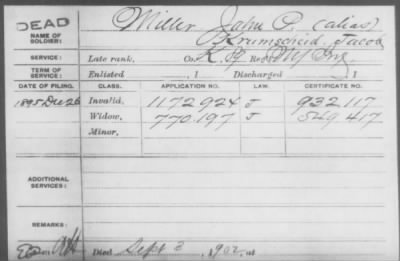 DEAD
NAME OF SOLDIER:
Miller, John P. (alias)
Krumscheid, Jacob
SERVICE:
Late rank, Co. K, Reg't Inf.
TERM OF SERVICE:
Enlisted , 1 Discharged , 1
DATE OF FILING. CLASS. APPLICATION NO. LAW. CERTIFICATE NO.
1895 Dec 26 Invalid, 1172924 J 932117
Widow, 770197 J 549417
Minor,
ADDITIONAL SERVICES:
REMARKS:
Died Sept 3, 1902, at